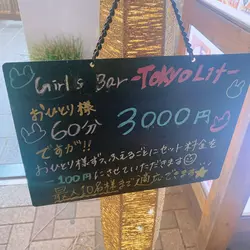 Girls Bar -TOKYO Lit-
おひとり様
60分 3000円
ですが!!
おひとり様ずつふえるごとにセット料金を
100円にさせていただきます
最大10名様まで適応できます